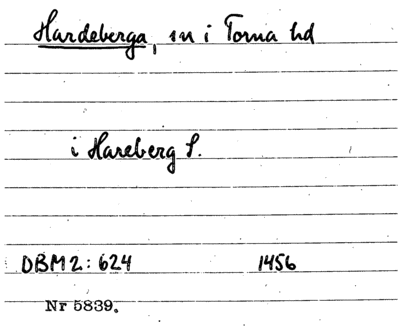 Hardeberga, sn i Torna hd
i Hareberg S.
DBM 2: 624 1456
Nr 5839.